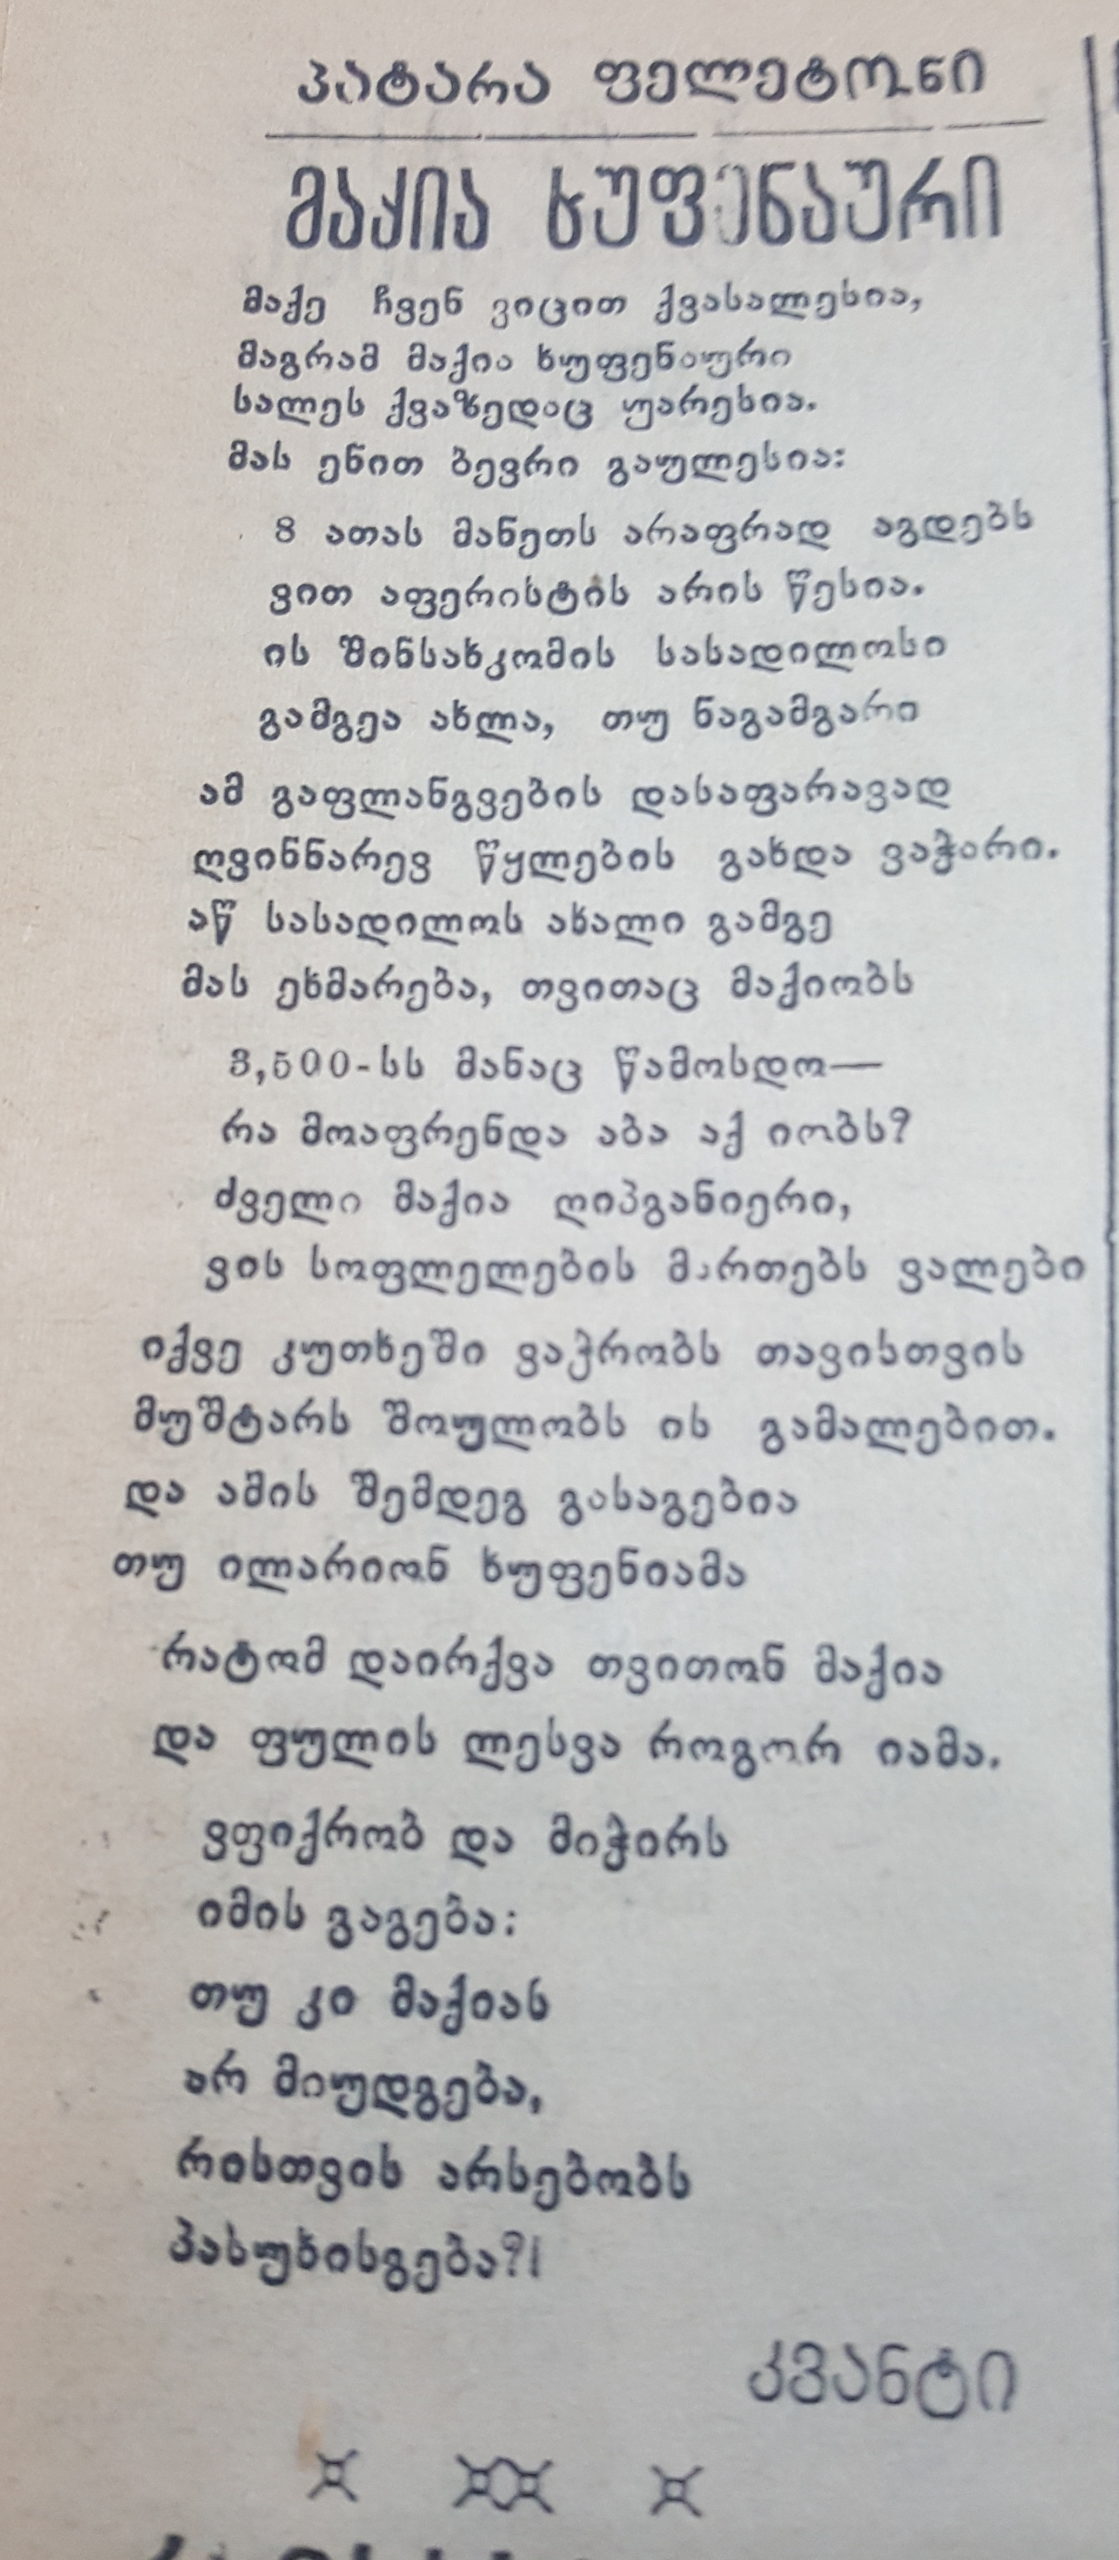 პატარა ფელეტონი
მაქია ხუფენაური
მაქე ჩვენ ვიცით ქვასალესია,
მაგრამ მაქია ხუფენაური
სალეს ქვაზედაც უარესია.
მას ენით ბევრი გაულესია:
8 ათას მანეთს არაფრად აგდებს
ვით აფერისტის არის წესია.
ის შინსახკომის სასადილოსი
გამგეა ახლა, თუ ნაგამგარი
ამ გაფლანგვების დასაფარავად
ღვინნარევ წყლების გახდა ვაჭარი.
აწ სასადილოს ახალი გამგე
მას ეხმარება, თვითაც მაქიობს
3,500-სს მანაც წამოსდო—
რა მოაფრენდა აბა აქ იობს?
ძველი მაქია ღიპგანიერი,
ვის სოფლელების მართებს ვალები
იქვე კუთხეში ვაჭრობს თავისთვის
მუშტარს შოულობს ის გამალებით.
და ამის შემდეგ გასაგებია
თუ ილარიონ ხუფენიამა
რატომ დაირქვა თვითონ მაქია
და ფულის ლესვა როგორ იამა.
ვფიქრობ და მიჭირს
იმის გაგება:
თუ კი მაქიას
არ მიუდგება,
რისთვის არსებობს
პასუხისგება?!
კვანტი